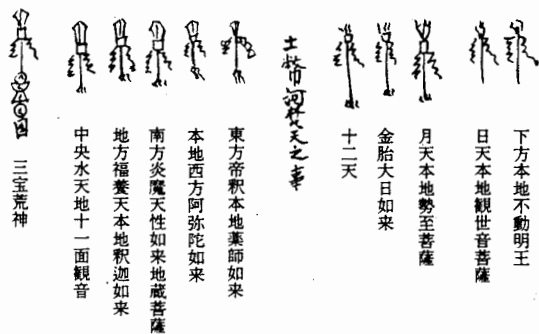 下方本地不動明王
日天本地観世音菩薩
月天本地勢至菩薩
金胎大日如来
十二天
東方帝釈本地薬師如来
本地西方阿弥陀如来
南方炎魔天性如来地蔵菩薩
地方福養天本地釈迦如来
中央水天地十一面観音
三宝荒神